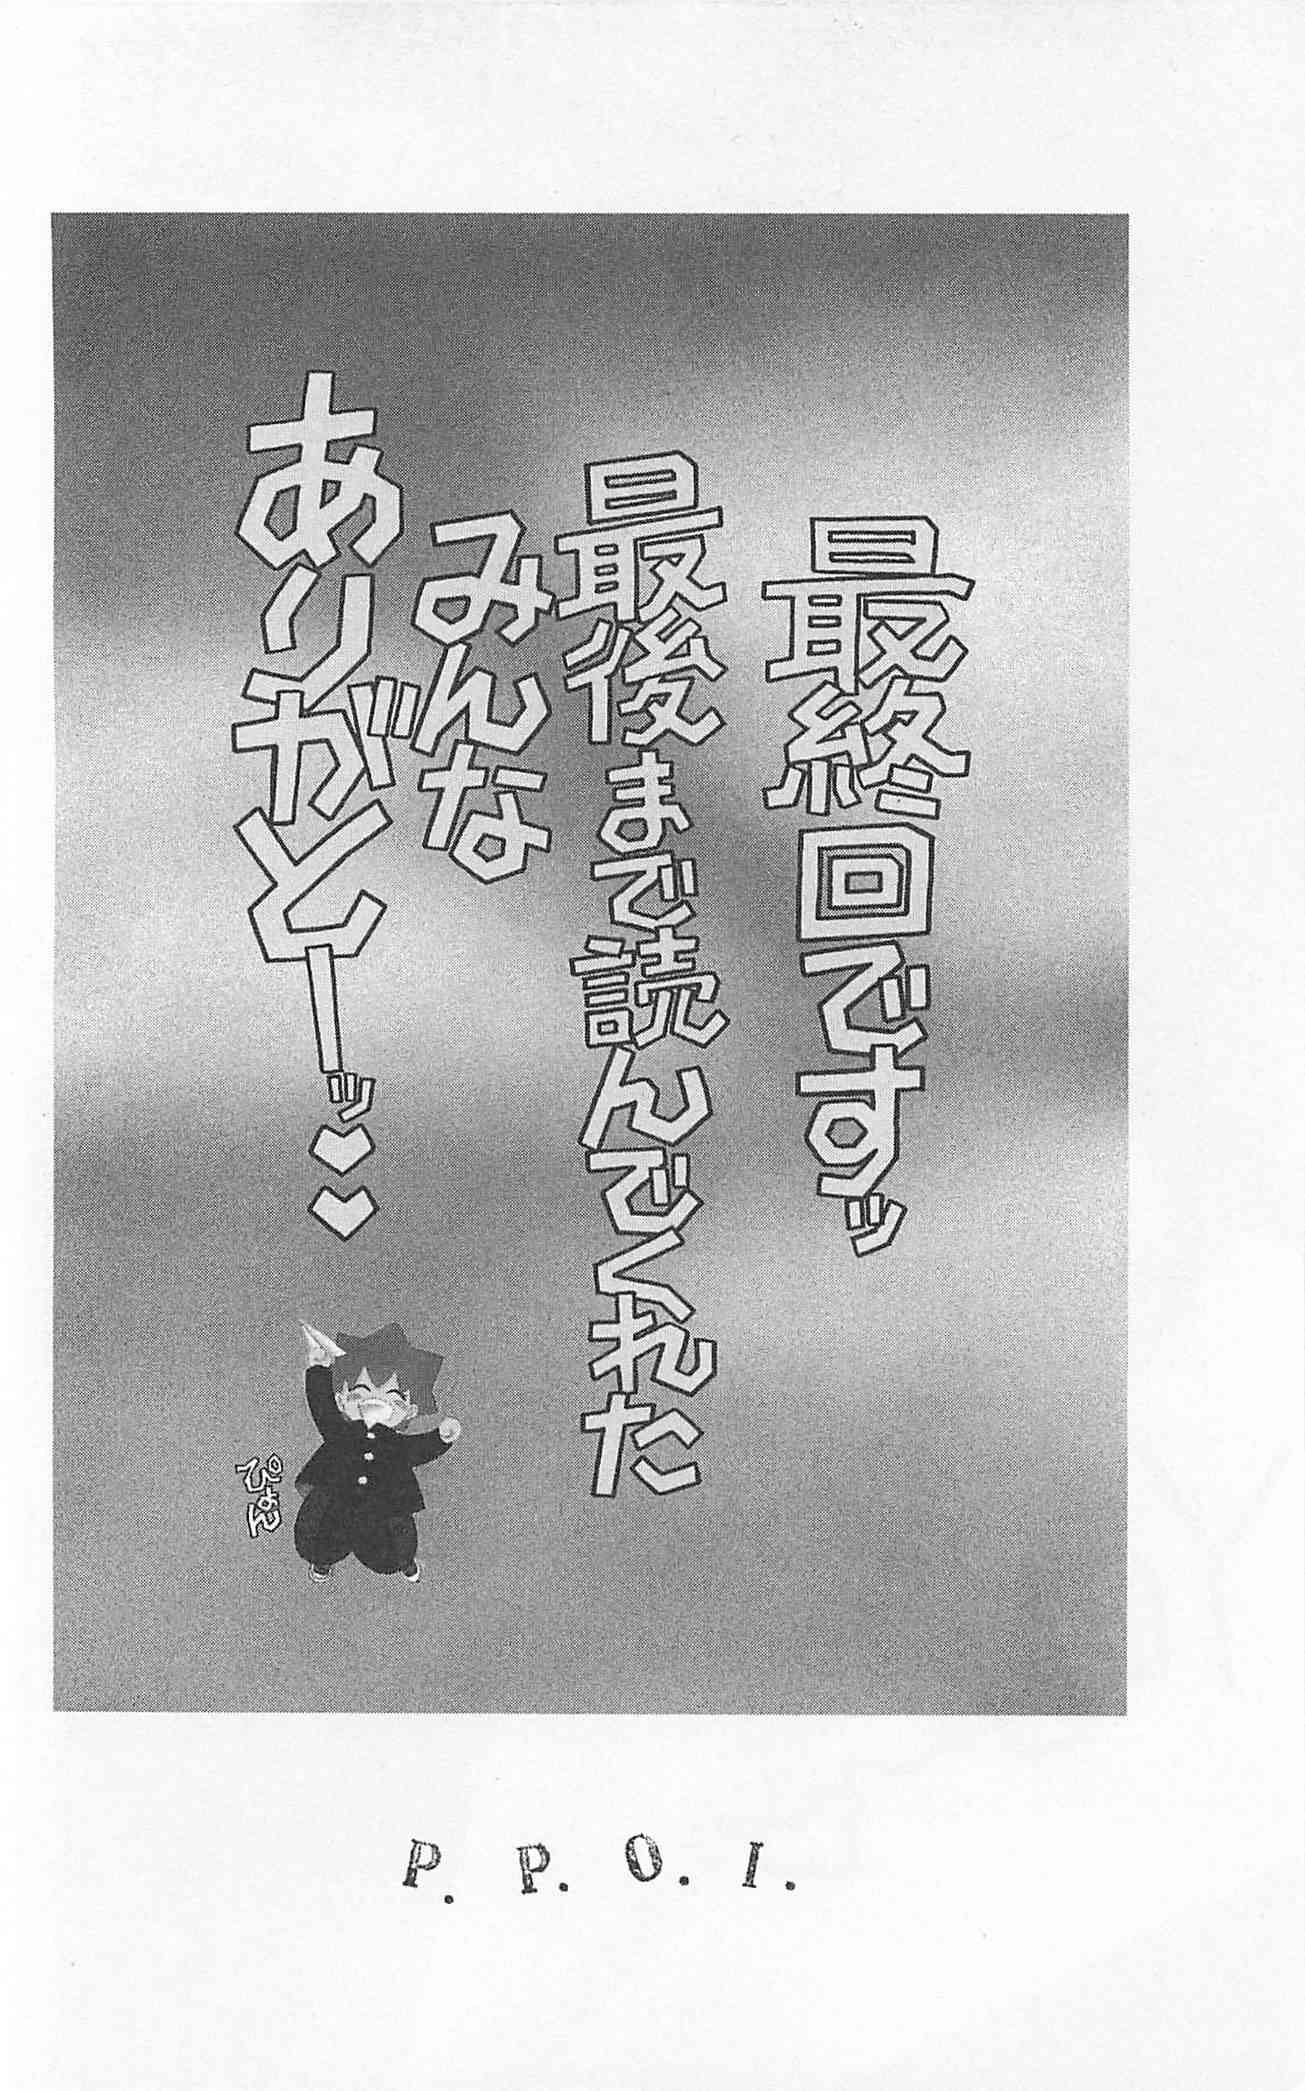 最終回ですッ
最後まで読んでくれた
みんな
ありがとーッ♥♥
ぴょん
P.P.O.I.